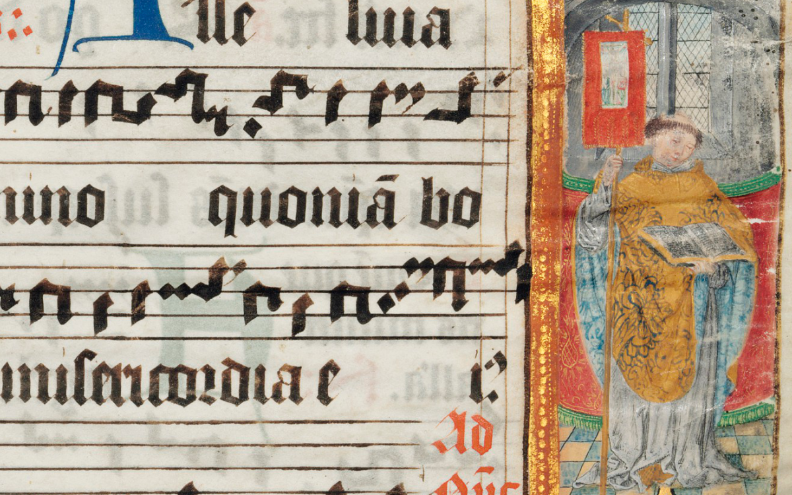 Alle luia
mino quoniā bo
misericordia e i?
Ad